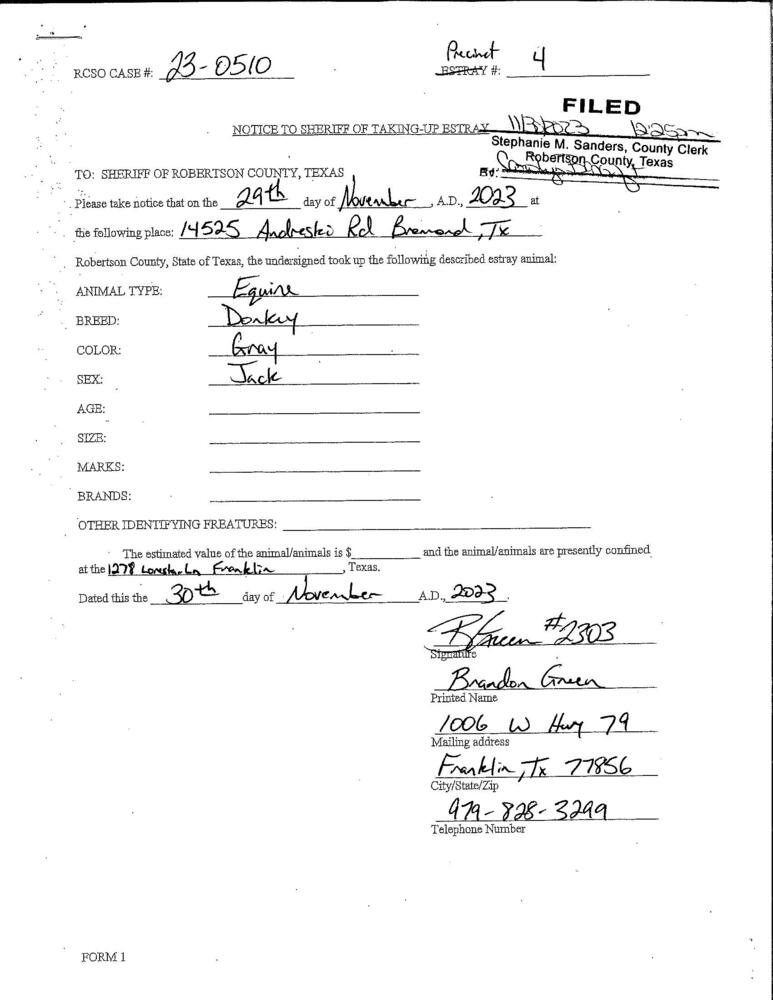 Precinct 4
RCSO CASE #: 23-0510 ESTRAY #:
FILED
NOTICE TO SHERIFF OF TAKING-UP ESTRAY 2023
Stephanie M. Sanders, County Clerk
Robertson County, Texas
TO: SHERIFF OF ROBERTSON COUNTY, TEXAS
Please take notice that on the 29th day of November, A.D., 2023 at
the following place: 14525 Andreski Rd Bremond, Tx
Robertson County, State of Texas, the undersigned took up the following described estray animal:
ANIMAL TYPE: Equine
BREED: Donkey
COLOR: Gray
SEX: Jack
AGE:
SIZE:
MARKS:
BRANDS:
OTHER IDENTIFYING FREATURES:
The estimated value of the animal/animals is $ and the animal/animals are presently confined
at the 1278 Ln Franklin, Texas.
Dated this the 30th day of November A.D., 2023.
BGreen #2303
Signature
Brandon Green
Printed Name
1006 W Hwy 79
Mailing address
Franklin, Tx 77856
City/State/Zip
979-828-3299
Telephone Number
FORM 1